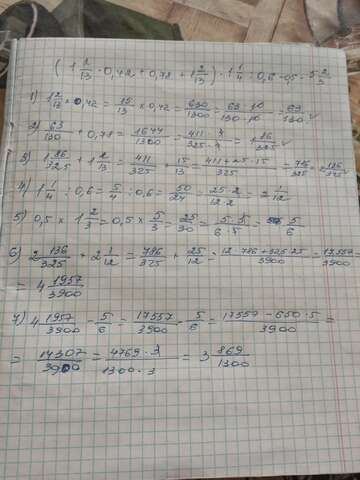 (1 2/13 · 0,42 + 0,78 + 1 2/13) · 1 1/4 : 0,6 - 0,5 · 2/3
1) 1 2/13 × 0,42 = 15/13 × 0,42 = 630/1300 = 63·10/130·10 = 63/130 ✓
2) 63/130 + 0,78 = 1644/1300 = 411·4/325·4 = 1 86/325 ✓
3) 1 86/325 + 1 2/13 = 411/325 + 15/13 = 411+25·15/325 = 786/325 = 2 136/325 ✓
4) 1 1/4 : 0,6 = 5/4 : 0,6 = 50/24 = 25·2/12·2 = 2 1/12
5) 0,5 × 1 2/3 = 0,5 × 5/3 = 25/30 = 5·5/6·5 = 5/6
6) 2 136/325 + 2 1/12 = 786/325 + 25/12 = 12·786+325·25/3900 = 17557/3900
= 4 1957/3900
7) 4 1957/3900 - 5/6 = 17557/3900 - 5/6 = 17557-650·5/3900 =
= 14307/3900 = 4769·3/1300·3 = 3 869/1300